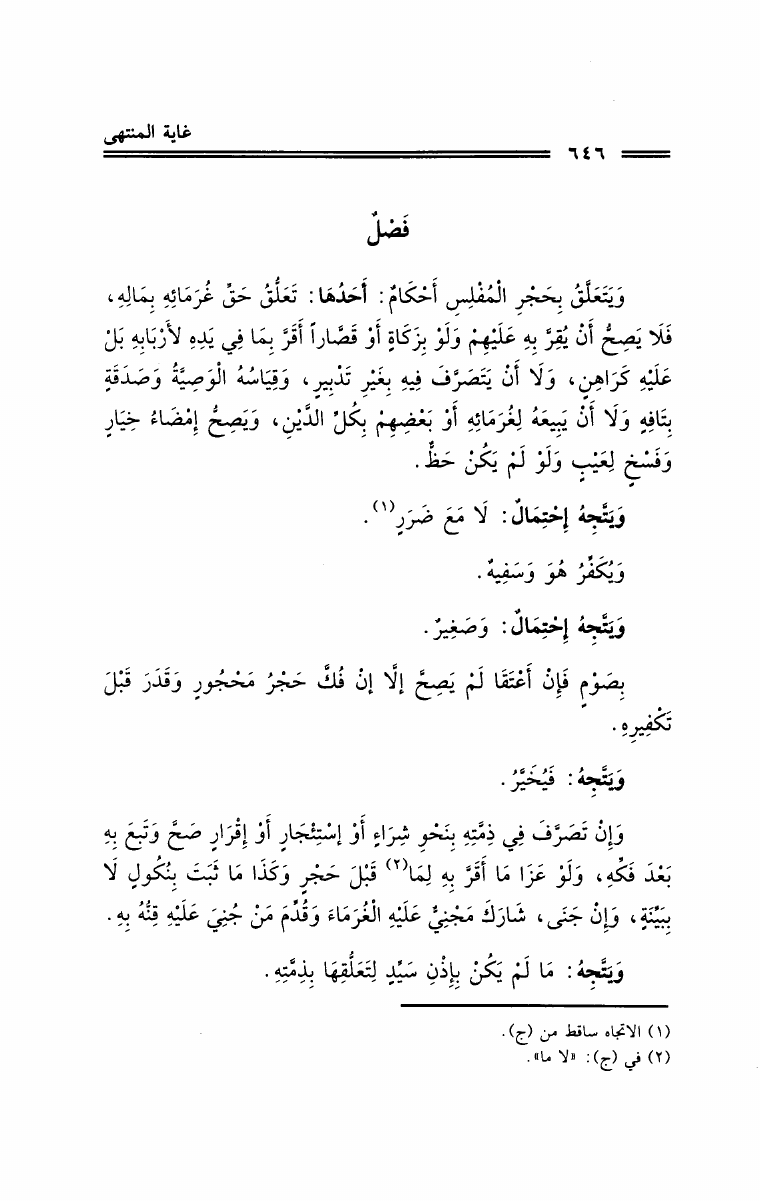 غاية المنتهى
٦٤٦
فَصْلٌ
وَيَتَعَلَّقُ بِحَجْرِ الْمُفْلِسِ أَحْكَامٌ: أَحَدُهَا: تَعَلُّقُ حَقِّ غُرَمَائِهِ بِمَالِهِ،
فَلَا يَصِحُّ أَنْ يُقِرَّ بِهِ عَلَيْهِمْ وَلَوْ بِزَكَاةٍ أَوْ قَصَّاراً أَقَرَّ بِمَا فِي يَدِهِ لأَرْبَابِهِ بَلْ
عَلَيْهِ كَرَاهِنٍ، وَلَا أَنْ يَتَصَرَّفَ فِيهِ بِغَيْرِ تَدْبِيرٍ، وَقِيَاسُهُ الْوَصِيَّةُ وَصَدَقَةٍ
بِتَافِهٍ وَلَا أَنْ يَبِيعَهُ لِغُرَمَائِهِ أَوْ بَعْضِهِمْ بِكُلِّ الدَّيْنِ، وَيَصِحُّ إِمْضَاءُ خِيَارٍ
وَفَسْخٍ لِعَيْبٍ وَلَوْ لَمْ يَكُنْ حَظٌّ.
وَيَتَّجِهُ إِحْتِمَالٌ: لَا مَعَ ضَرَرٍ(١).
وَيُكَفِّرُ هُوَ وَسَفِيهٌ.
وَيَتَّجِهُ إِحْتِمَالٌ: وَصَغِيرٌ.
بِصَوْمٍ فَإِنْ أَعْتَقَا لَمْ يَصِحَّ إِلَّا إِنْ فُكَّ حَجْرُ مَحْجُورٍ وَقَدَرَ قَبْلَ
تَكْفِيرِهِ.
وَيَتَّجِهُ: فَيُخَيَّرُ.
وَإِنْ تَصَرَّفَ فِي ذِمَّتِهِ بِنَحْوِ شِرَاءٍ أَوْ إِسْتِئْجَارٍ أَوْ إِقْرَارٍ صَحَّ وَتَبِعَ بِهِ
بَعْدَ فَكِّهِ، وَلَوْ عَزَا مَا أَقَرَّ بِهِ لِمَا(٢) قَبْلَ حَجْرٍ وَكَذَا مَا ثَبَتَ بِنُكُولٍ لَا
بِبَيِّنَةٍ، وَإِنْ جَنَى، شَارَكَ مَجْنِيٌّ عَلَيْهِ الْغُرَمَاءَ وَقُدِّمَ مَنْ جُنِيَ عَلَيْهِ قِنُّهُ بِهِ.
وَيَتَّجِهُ: مَا لَمْ يَكُنْ بِإِذْنِ سَيِّدٍ لِتَعَلُّقِهَا بِذِمَّتِهِ.
(١) الاتجاه ساقط من (ج).
(٢) في (ج): «لا ما».